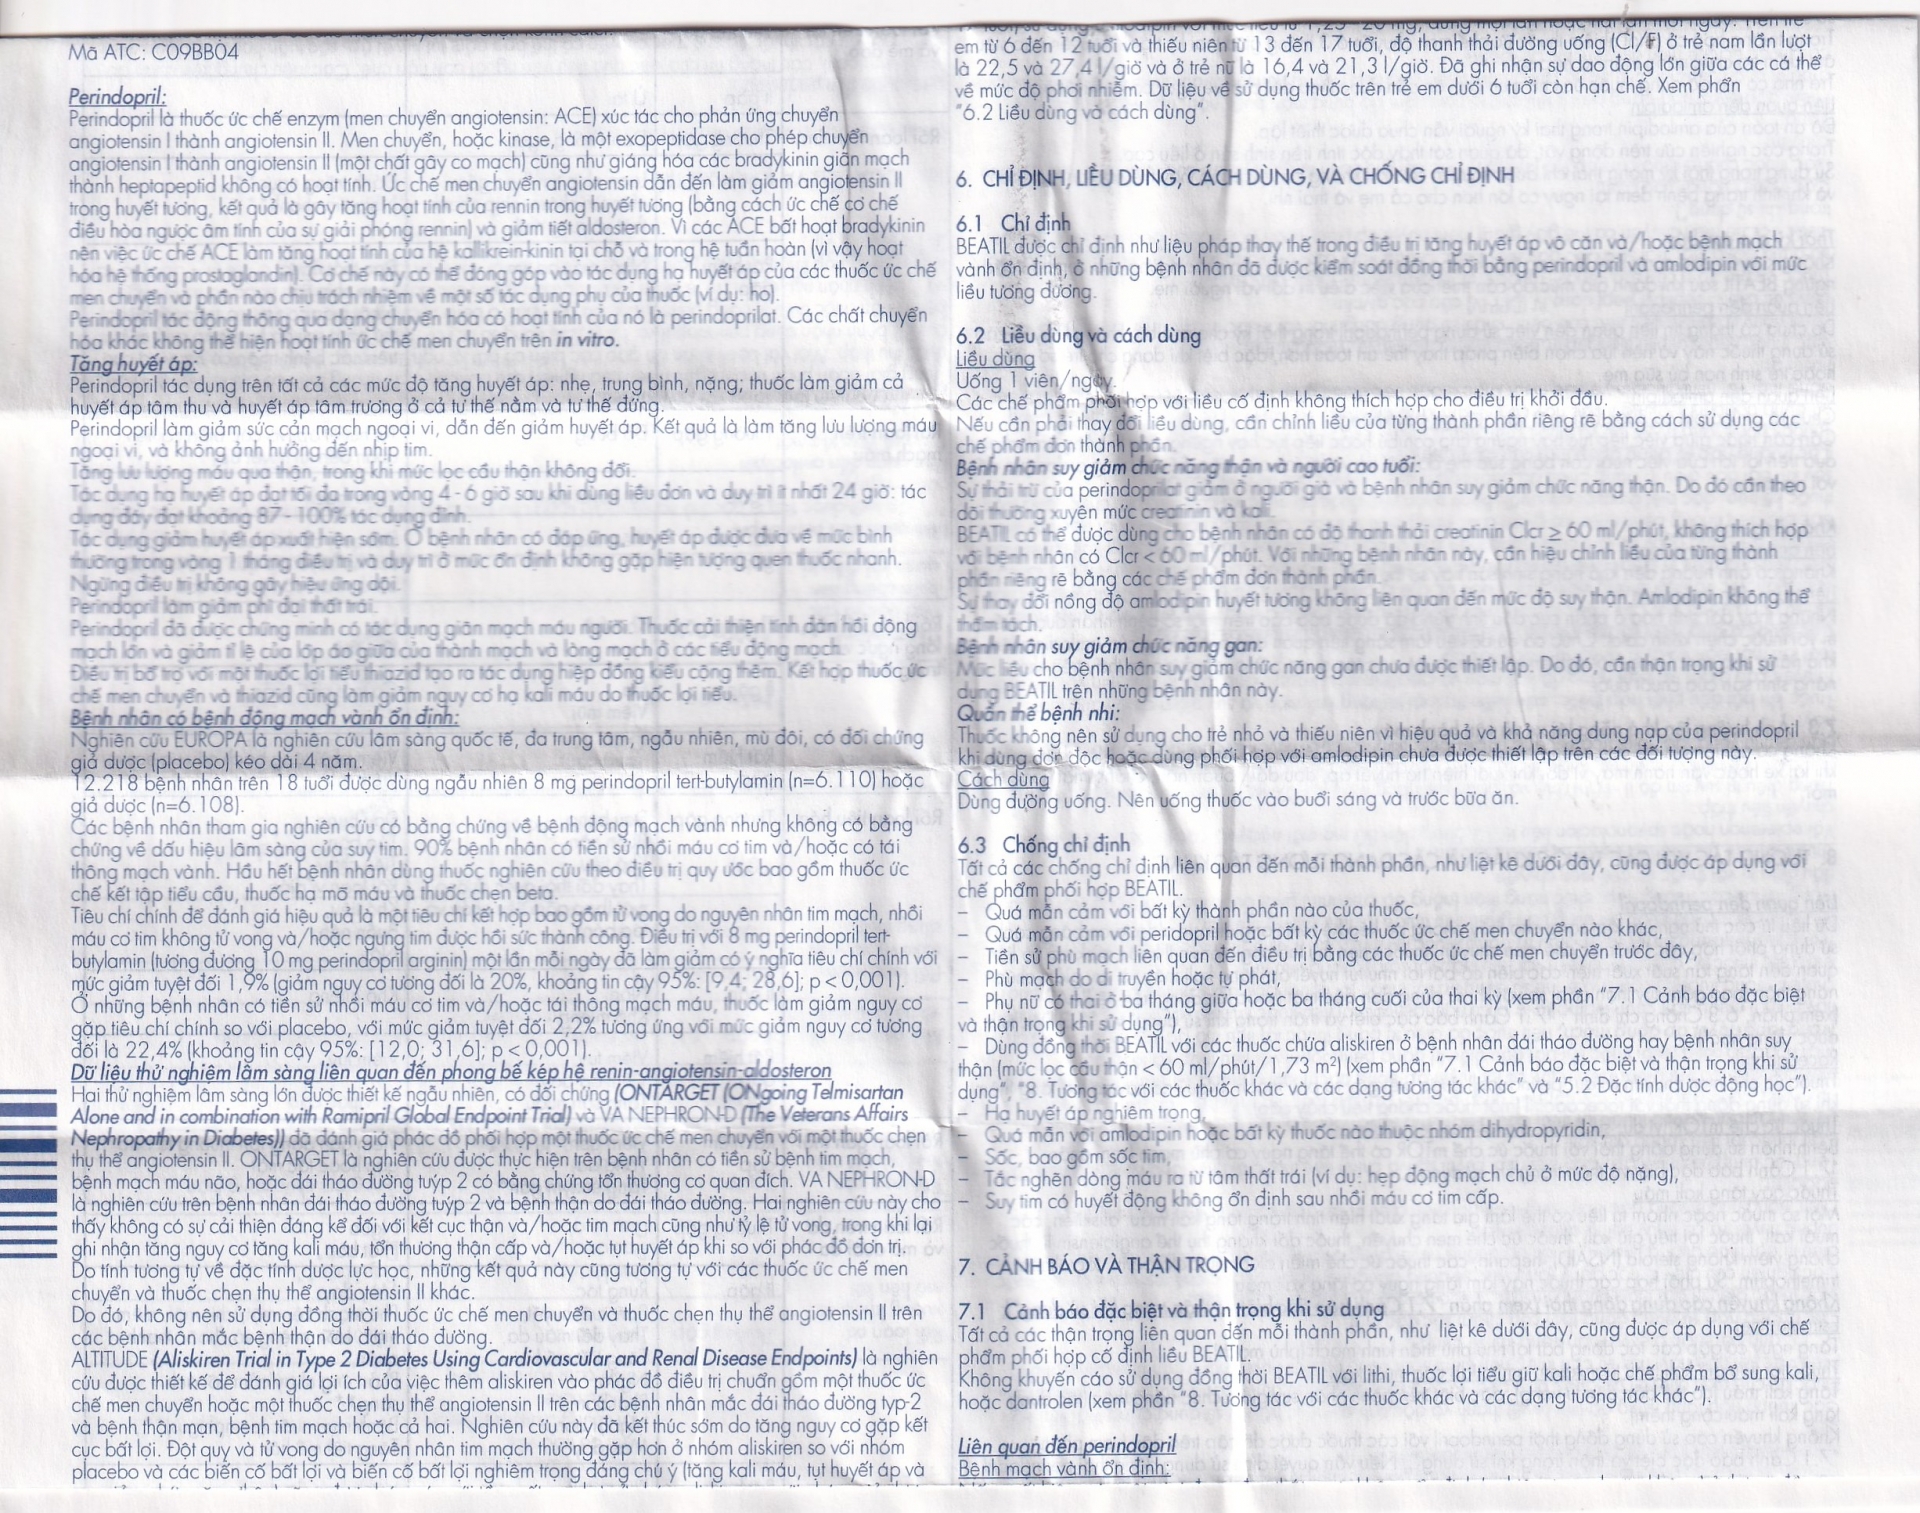 Mã ATC: C09BB04
Perindopril:
Perindopril là thuốc ức chế enzym (men chuyển angiotensin: ACE) xúc tác cho phản ứng chuyển
angiotensin I thành angiotensin II. Men chuyển, hoặc kinase, là một exopeptidase cho phép chuyển
angiotensin I thành angiotensin II (một chất gây co mạch) cũng như giáng hóa các bradykinin giãn mạch
thành heptapeptid không có hoạt tính. Ức chế men chuyển angiotensin dẫn đến làm giảm angiotensin II
trong huyết tương, kết quả là gây tăng hoạt tính của rennin trong huyết tương (bằng cách ức chế cơ chế
điều hòa ngược âm tính của sự giải phóng rennin) và giảm tiết aldosteron. Vì các ACE bất hoạt bradykinin
nên việc ức chế ACE làm tăng hoạt tính của hệ kallikrein-kinin tại chỗ và trong hệ tuần hoàn (vì vậy hoạt
hóa hệ thống prostaglandin). Cơ chế này có thể đóng góp vào tác dụng hạ huyết áp của các thuốc ức chế
men chuyển và phần nào chịu trách nhiệm về một số tác dụng phụ của thuốc (ví dụ: ho).
Perindopril tác động thông qua dạng chuyển hóa có hoạt tính của nó là perindoprilat. Các chất chuyển
hóa khác không thể hiện hoạt tính ức chế men chuyển trên in vitro.
Tăng huyết áp:
Perindopril tác dụng trên tất cả các mức độ tăng huyết áp: nhẹ, trung bình, nặng; thuốc làm giảm cả
huyết áp tâm thu và huyết áp tâm trương ở cả tư thế nằm và tư thế đứng.
Perindopril làm giảm sức cản mạch ngoại vi, dẫn đến giảm huyết áp. Kết quả là làm tăng lưu lượng máu
ngoại vi, và không ảnh hưởng đến nhịp tim.
Tăng lưu lượng máu qua thận, trong khi mức lọc cầu thận không đổi.
Tác dụng hạ huyết áp đạt tối đa trong vòng 4 - 6 giờ sau khi dùng liều đơn và duy trì ít nhất 24 giờ: tác
dụng đáy đạt khoảng 87 - 100% tác dụng đỉnh.
Tác dụng giảm huyết áp xuất hiện sớm. Ở bệnh nhân có đáp ứng, huyết áp được đưa về mức bình
thường trong vòng 1 tháng điều trị và duy trì ở mức ổn định không gặp hiện tượng quen thuốc nhanh.
Ngừng điều trị không gây hiệu ứng dội.
Perindopril làm giảm phì đại thất trái.
Perindopril đã được chứng minh có tác dụng giãn mạch máu người. Thuốc cải thiện tính đàn hồi động
mạch lớn và giảm tỉ lệ của lớp áo giữa của thành mạch và lòng mạch ở các tiểu động mạch.
Điều trị bổ trợ với một thuốc lợi tiểu thiazid tạo ra tác dụng hiệp đồng kiểu cộng thêm. Kết hợp thuốc ức
chế men chuyển và thiazid cũng làm giảm nguy cơ hạ kali máu do thuốc lợi tiểu.
Bệnh nhân có bệnh động mạch vành ổn định:
Nghiên cứu EUROPA là nghiên cứu lâm sàng quốc tế, đa trung tâm, ngẫu nhiên, mù đôi, có đối chứng
giả dược (placebo) kéo dài 4 năm.
12.218 bệnh nhân trên 18 tuổi được dùng ngẫu nhiên 8 mg perindopril tert-butylamin (n=6.110) hoặc
giả dược (n=6.108).
Các bệnh nhân tham gia nghiên cứu có bằng chứng về bệnh động mạch vành nhưng không có bằng
chứng về dấu hiệu lâm sàng của suy tim. 90% bệnh nhân có tiền sử nhồi máu cơ tim và/hoặc có tái
thông mạch vành. Hầu hết bệnh nhân dùng thuốc nghiên cứu theo điều trị quy ước bao gồm thuốc ức
chế kết tập tiểu cầu, thuốc hạ mỡ máu và thuốc chẹn beta.
Tiêu chí chính để đánh giá hiệu quả là một tiêu chí kết hợp bao gồm tử vong do nguyên nhân tim mạch, nhồi
máu cơ tim không tử vong và/hoặc ngưng tim được hồi sức thành công. Điều trị với 8 mg perindopril tert-
butylamin (tương đương 10 mg perindopril arginin) một lần mỗi ngày đã làm giảm có ý nghĩa tiêu chí chính với
mức giảm tuyệt đối 1,9% (giảm nguy cơ tương đối là 20%, khoảng tin cậy 95%: [9,4; 28,6]; p < 0,001).
Ở những bệnh nhân có tiền sử nhồi máu cơ tim và/hoặc tái thông mạch máu, thuốc làm giảm nguy cơ
gặp tiêu chí chính so với placebo, với mức giảm tuyệt đối 2,2% tương ứng với mức giảm nguy cơ tương
đối là 22,4% (khoảng tin cậy 95%: [12,0; 31,6]; p < 0,001).
Dữ liệu thử nghiệm lâm sàng liên quan đến phong bế kép hệ renin-angiotensin-aldosteron
Hai thử nghiệm lâm sàng lớn được thiết kế ngẫu nhiên, có đối chứng (ONTARGET (ONgoing Telmisartan
Alone and in combination with Ramipril Global Endpoint Trial) và VA NEPHRON-D (The Veterans Affairs
Nephropathy in Diabetes)) đã đánh giá phác đồ phối hợp một thuốc ức chế men chuyển với một thuốc chẹn
thụ thể angiotensin II. ONTARGET là nghiên cứu được thực hiện trên bệnh nhân có tiền sử bệnh tim mạch,
bệnh mạch máu não, hoặc đái tháo đường tuýp 2 có bằng chứng tổn thương cơ quan đích. VA NEPHRON-D
là nghiên cứu trên bệnh nhân đái tháo đường tuýp 2 và bệnh thận do đái tháo đường. Hai nghiên cứu này cho
thấy không có sự cải thiện đáng kể đối với kết cục thận và/hoặc tim mạch cũng như tỷ lệ tử vong, trong khi lại
ghi nhận tăng nguy cơ tăng kali máu, tổn thương thận cấp và/hoặc tụt huyết áp khi so với phác đồ đơn trị.
Do tính tương tự về đặc tính dược lực học, những kết quả này cũng tương tự với các thuốc ức chế men
chuyển và thuốc chẹn thụ thể angiotensin II khác.
Do đó, không nên sử dụng đồng thời thuốc ức chế men chuyển và thuốc chẹn thụ thể angiotensin II trên
các bệnh nhân mắc bệnh thận do đái tháo đường.
ALTITUDE (Aliskiren Trial in Type 2 Diabetes Using Cardiovascular and Renal Disease Endpoints) là nghiên
cứu được thiết kế để đánh giá lợi ích của việc thêm aliskiren vào phác đồ điều trị chuẩn gồm một thuốc ức
chế men chuyển hoặc một thuốc chẹn thụ thể angiotensin II trên các bệnh nhân mắc đái tháo đường typ-2
và bệnh thận mạn, bệnh tim mạch hoặc cả hai. Nghiên cứu này đã kết thúc sớm do tăng nguy cơ gặp kết
cục bất lợi. Đột quỵ và tử vong do nguyên nhân tim mạch thường gặp hơn ở nhóm aliskiren so với nhóm
placebo và các biến cố bất lợi và biến cố bất lợi nghiêm trọng đáng chú ý (tăng kali máu, tụt huyết áp và
em từ 6 đến 12 tuổi và thiếu niên từ 13 đến 17 tuổi, độ thanh thải đường uống (Cl/F) ở trẻ nam lần lượt
là 22,5 và 27,4 l/giờ và ở trẻ nữ là 16,4 và 21,3 l/giờ. Đã ghi nhận sự dao động lớn giữa các cá thể
về mức độ phơi nhiễm. Dữ liệu về sử dụng thuốc trên trẻ em dưới 6 tuổi còn hạn chế. Xem phần
"6.2 Liều dùng và cách dùng".
6. CHỈ ĐỊNH, LIỀU DÙNG, CÁCH DÙNG, VÀ CHỐNG CHỈ ĐỊNH
6.1 Chỉ định
BEATIL được chỉ định như liệu pháp thay thế trong điều trị tăng huyết áp vô căn và/hoặc bệnh mạch
vành ổn định, ở những bệnh nhân đã được kiểm soát đồng thời bằng perindopril và amlodipin với mức
liều tương đương.
6.2 Liều dùng và cách dùng
Liều dùng
Uống 1 viên/ngày.
Các chế phẩm phối hợp với liều cố định không thích hợp cho điều trị khởi đầu.
Nếu cần phải thay đổi liều dùng, cần chỉnh liều của từng thành phần riêng rẽ bằng cách sử dụng các
chế phẩm đơn thành phần.
Bệnh nhân suy giảm chức năng thận và người cao tuổi:
Sự thải trừ của perindoprilat giảm ở người già và bệnh nhân suy giảm chức năng thận. Do đó cần theo
dõi thường xuyên mức creatinin và kali.
BEATIL có thể được dùng cho bệnh nhân có độ thanh thải creatinin Clcr ≥ 60 ml/phút, không thích hợp
với bệnh nhân có Clcr < 60 ml/phút. Với những bệnh nhân này, cần hiệu chỉnh liều của từng thành
phần riêng rẽ bằng các chế phẩm đơn thành phần.
Sự thay đổi nồng độ amlodipin huyết tương không liên quan đến mức độ suy thận. Amlodipin không thể
thẩm tách.
Bệnh nhân suy giảm chức năng gan:
Mức liều cho bệnh nhân suy giảm chức năng gan chưa được thiết lập. Do đó, cần thận trọng khi sử
dụng BEATIL trên những bệnh nhân này.
Quần thể bệnh nhi:
Thuốc không nên sử dụng cho trẻ nhỏ và thiếu niên vì hiệu quả và khả năng dung nạp của perindopril
khi dùng đơn độc hoặc dùng phối hợp với amlodipin chưa được thiết lập trên các đối tượng này.
Cách dùng
Dùng đường uống. Nên uống thuốc vào buổi sáng và trước bữa ăn.
6.3 Chống chỉ định
Tất cả các chống chỉ định liên quan đến mỗi thành phần, như liệt kê dưới đây, cũng được áp dụng với
chế phẩm phối hợp BEATIL.
– Quá mẫn cảm với bất kỳ thành phần nào của thuốc,
– Quá mẫn cảm với peridopril hoặc bất kỳ các thuốc ức chế men chuyển nào khác,
– Tiền sử phù mạch liên quan đến điều trị bằng các thuốc ức chế men chuyển trước đây,
– Phù mạch do di truyền hoặc tự phát,
– Phụ nữ có thai ở ba tháng giữa hoặc ba tháng cuối của thai kỳ (xem phần "7.1 Cảnh báo đặc biệt
và thận trọng khi sử dụng"),
– Dùng đồng thời BEATIL với các thuốc chứa aliskiren ở bệnh nhân đái tháo đường hay bệnh nhân suy
thận (mức lọc cầu thận < 60 ml/phút/1,73 m²) (xem phần "7.1 Cảnh báo đặc biệt và thận trọng khi sử
dụng", "8. Tương tác với các thuốc khác và các dạng tương tác khác" và "5.2 Đặc tính dược động học").
– Hạ huyết áp nghiêm trọng,
– Quá mẫn với amlodipin hoặc bất kỳ thuốc nào thuộc nhóm dihydropyridin,
– Sốc, bao gồm sốc tim,
– Tắc nghẽn dòng máu ra từ tâm thất trái (ví dụ: hẹp động mạch chủ ở mức độ nặng),
– Suy tim có huyết động không ổn định sau nhồi máu cơ tim cấp.
7. CẢNH BÁO VÀ THẬN TRỌNG
7.1 Cảnh báo đặc biệt và thận trọng khi sử dụng
Tất cả các thận trọng liên quan đến mỗi thành phần, như liệt kê dưới đây, cũng được áp dụng với chế
phẩm phối hợp cố định liều BEATIL.
Không khuyến cáo sử dụng đồng thời BEATIL với lithi, thuốc lợi tiểu giữ kali hoặc chế phẩm bổ sung kali,
hoặc dantrolen (xem phần "8. Tương tác với các thuốc khác và các dạng tương tác khác").
Liên quan đến perindopril
Bệnh mạch vành ổn định: